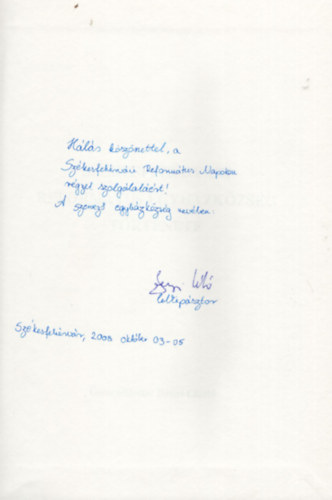 Hálás köszönettel, a
Székesfehérvári Református Napokon
végzett szolgálatáért!
A szervező egyházközség nevében:
lelkipásztor
Székesfehérvár, 2003 október 03-05